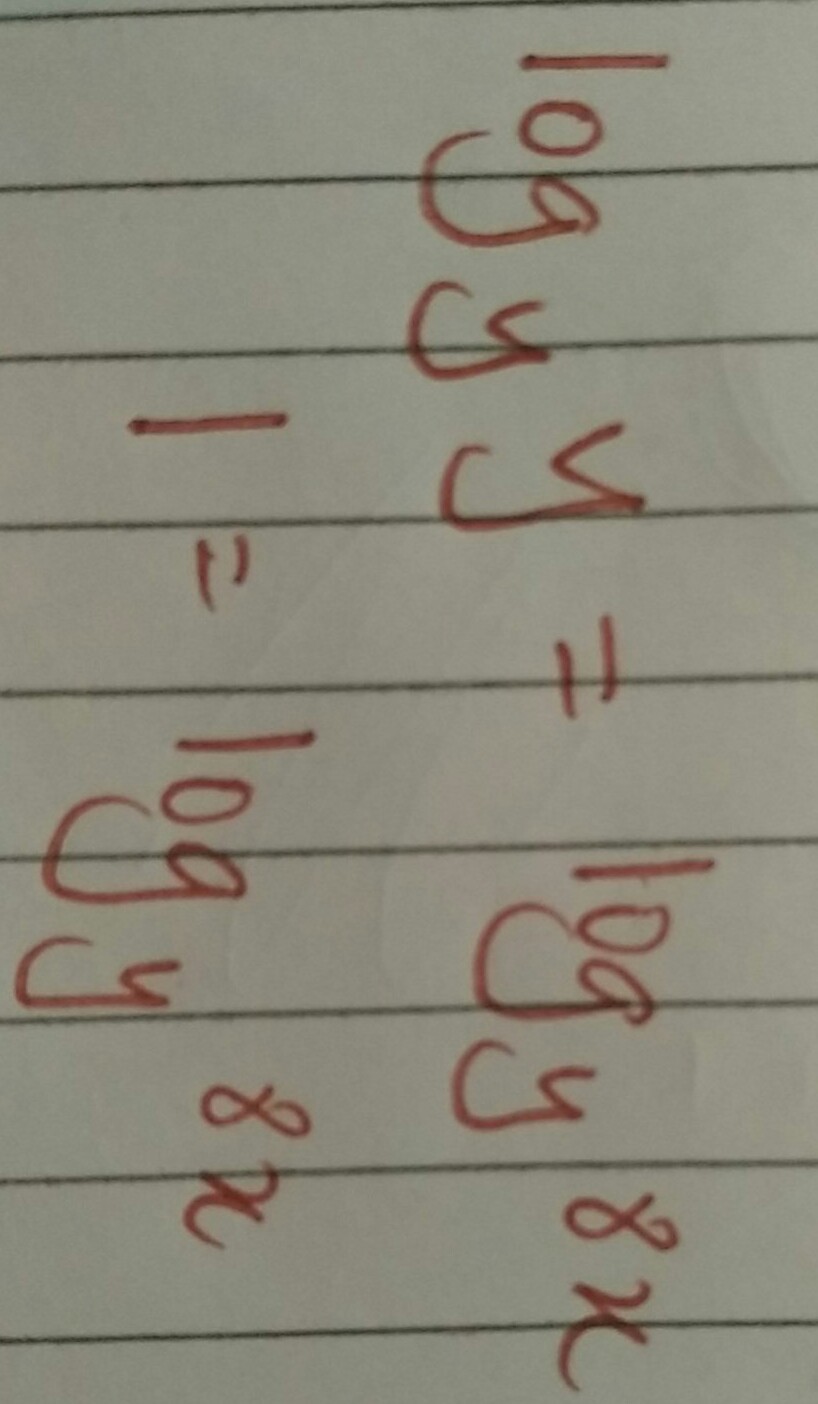 log_y y = log_y 8x
1 = log_y 8x